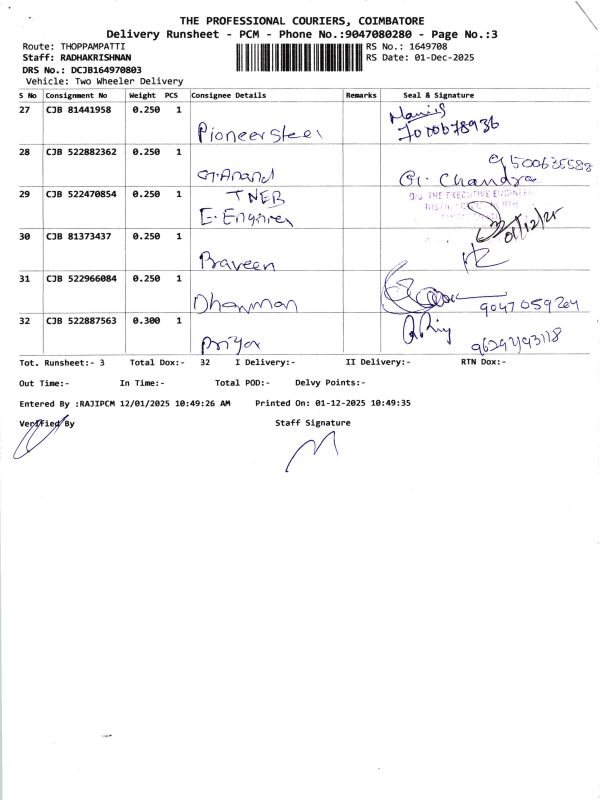 THE PROFESSIONAL COURIERS, COIMBATORE
Delivery Runsheet - PCM - Phone No.:9047080280 - Page No.:3
Route: THOPPAMPATTI
RS No.: 1649708
Staff: RADHAKRISHNAN
RS Date: 01-Dec-2025
DRS No.: DCJB164970803
Vehicle: Two Wheeler Delivery
S No Consignment No Weight PCS Consignee Details Remarks Seal & Signature
27 CJB 81441958 0.250 1
Pioneer Steel
28 CJB 522882362 0.250 1
G. Anand G. Chandra
29 CJB 522470854 0.250 1 TNEB
E. Engineer 01/12/25
30 CJB 81373437 0.250 1
Praveen
31 CJB 522966084 0.250 1
Dhanman 9047059264
32 CJB 522887563 0.300 1
Priya
Tot. Runsheet:- 3 Total Dox:- 32 I Delivery:- II Delivery:- RTN Dox:-
Out Time:- In Time:- Total POD:- Delvy Points:-
Entered By :RAJIPCM 12/01/2025 10:49:26 AM Printed On: 01-12-2025 10:49:35
Verified By Staff Signature